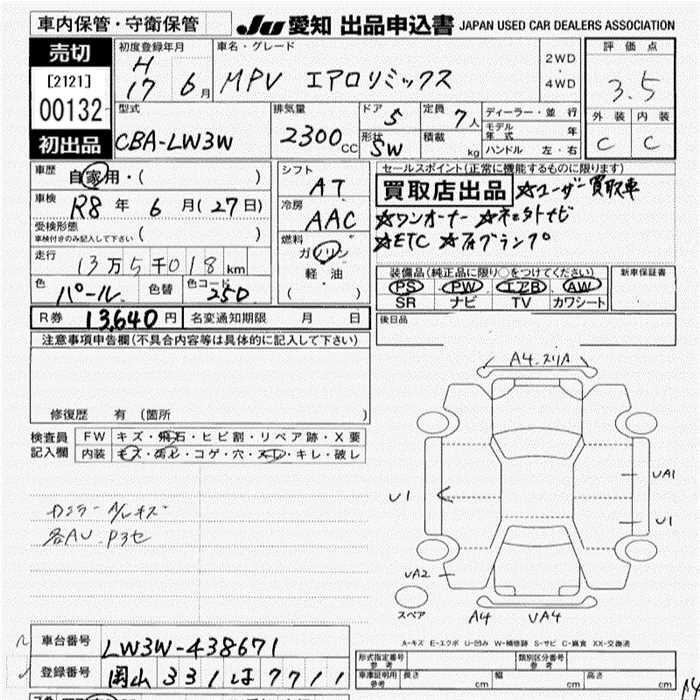 車内保管・守衛保管
JU 愛知 出品申込書 JAPAN USED CAR DEALERS ASSOCIATION
売切
[2121]
00132
初出品
初度登録年月
H
17 6月
車名・グレード
MPV エアロリミックス
2WD
・
4WD
評価点
3.5
外装 内装
C C
型式
CBA-LW3W
排気量
2300cc
ドア 5
形状 SW
定員 7人
積載 kg
ディーラー・並行
モデル年式 年
ハンドル 左・右
車歴
自家用・( )
車検
R8年 6月(27日)
受検形態
車検付きのみ記入して下さい ( )
走行
13万5千018km
色 パール 色替 色コード 25D
シフト
AT
冷房
AAC
燃料
ガソリン
軽・油
( )
セールスポイント(正常に機能するものに限ります)
買取店出品 ☆ユーザー買取車
☆ワンオーナー ☆社外ナビ
☆ETC ☆フォグランプ
装備品(純正品に限り○をつけてください)
PS PW エアB AW
SR ナビ TV カワシート
新車保証書
R券 13,640円 名変通知期限 月 日
後日品
注意事項申告欄(不具合内容等は具体的に記入して下さい)
修復歴 有(箇所 )
検査員
記入欄
FW キズ・飛石・ヒビ割・リペア跡・X要
内装 キズ・汚れ・コゲ・穴・スレ・キレ・破レ
各AU P3セ
A4.スリA
U1
UA1
U1
UA2
スペア
A4 UA4
A-キズ E-エクボ U-凹み W-補修跡 S-サビ C-腐食 XX-交換済
車台番号 LW3W-438671
登録番号 岡山 331 ほ 7711
形式指定番号
参考
類別区分番号
参考
車庫証明用
参考
長さ cm 幅 cm 高さ cm